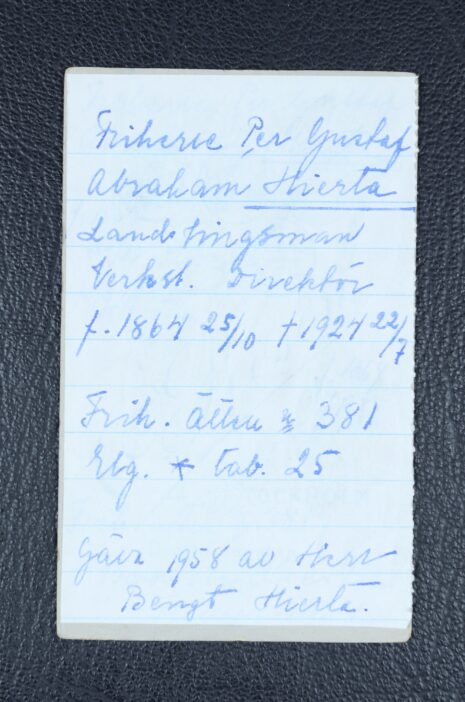 Friherre Per Gustaf
Abraham Hierta
Landstingsman
Verkst. Direktör
f. 1864 25/10 † 1924 22/7
Frih. Ätten № 381
Elg. * tab. 25
Gåva 1958 av Herr
Bengt Hierta.